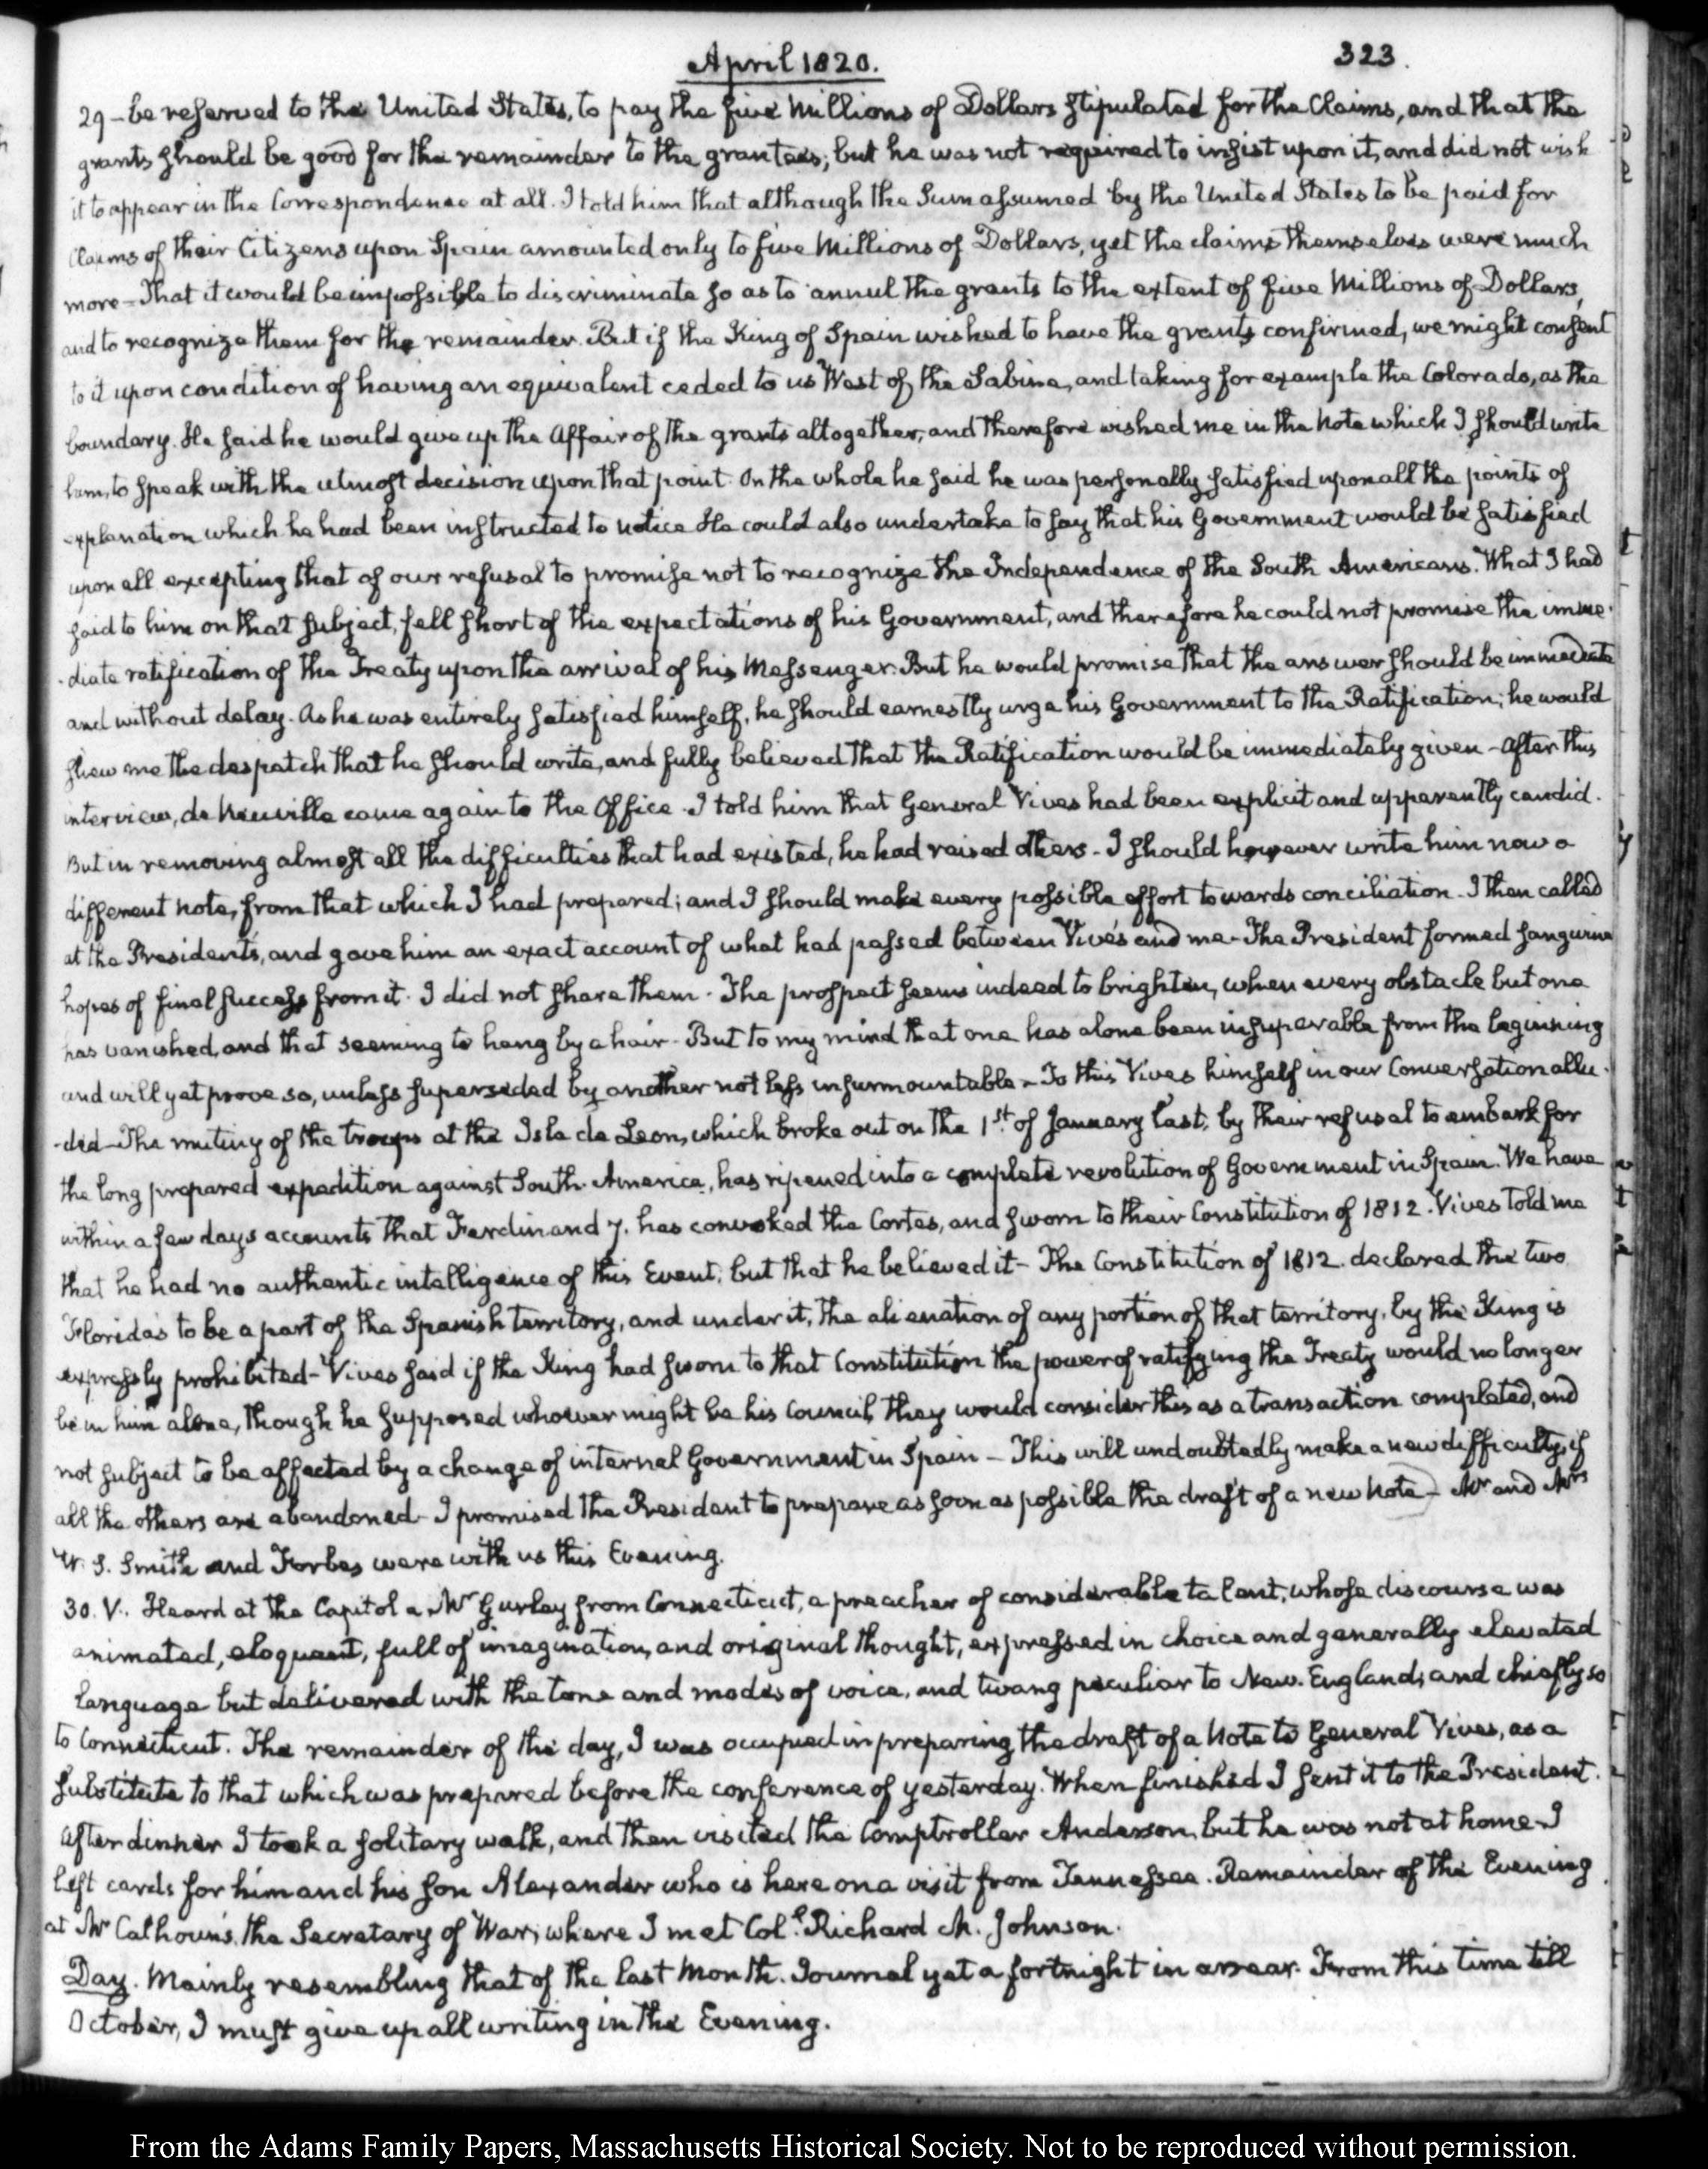 April 1820.
323.
29 - be reserved to the United States, to pay the five Millions of Dollars stipulated for the Claims, and that the
grants should be good for the remainder to the grantees; but he was not required to insist upon it, and did not wish
it to appear in the Correspondence at all. I told him that although the Sum assumed by the United States to be paid for
Claims of their Citizens upon Spain amounted only to five Millions of Dollars, yet the claims themselves were much
more - That it would be impossible to discriminate so as to annul the grants to the extent of five Millions of Dollars,
and to recognize them for the remainder. But if the King of Spain wished to have the grants confirmed, we might consent
to it upon condition of having an equivalent ceded to us West of the Sabine, and taking for example the Colorado, as the
boundary. He said he would give up the Affair of the grants altogether, and therefore wished me in the Note which I should write
him, to speak with the utmost decision upon that point. On the whole he said he was personally satisfied upon all the points of
explanation which he had been instructed to notice. He could also undertake to say that his Government would be satisfied
upon all excepting that of our refusal to promise not to recognize the Independence of the South Americans. What I had
said to him on that subject, fell short of the expectations of his Government, and therefore he could not promise the imme-
-diate ratification of the Treaty upon the arrival of his Messenger. But he would promise that the answer should be immediate
and without delay. As he was entirely satisfied himself, he should earnestly urge his Government to the Ratification; he would
shew me the despatch that he should write, and fully believed that the Ratification would be immediately given - After this
interview, de Neuville came again to the Office. I told him that General Vives had been explicit and apparently candid.
But in removing almost all the difficulties that had existed, he had raised others - I should however write him now a
different note, from that which I had prepared; and I should make every possible effort towards conciliation - I then called
at the President's, and gave him an exact account of what had passed between Vives and me - The President formed sanguine
hopes of final success from it. I did not share them. The prospect seems indeed to brighten, when every obstacle but one
has vanished, and that seeming to hang by a hair - But to my mind that one has alone been insuperable from the beginning
and will yet prove so, unless superseded by another not less insurmountable - To this Vives himself in our Conversation allu-
-ded - The mutiny of the troops at the Isla de Leon, which broke out on the 1st. of January last, by their refusal to embark for
the long prepared expedition against South America, has ripened into a complete revolution of Government in Spain. We have
within a few days accounts that Ferdinand 7. has convoked the Cortes, and sworn to their Constitution of 1812. Vives told me
that he had no authentic intelligence of this Event, but that he believed it - The Constitution of 1812. declared the two
Floridas to be a part of the Spanish territory, and under it, the alienation of any portion of that territory, by the King is
expressly prohibited - Vives said if the King had sworn to that Constitution the power of ratifying the Treaty would no longer
be in him alone, though he supposed whoever might be his Council, they would consider this as a transaction completed, and
not subject to be affected by a change of internal Government in Spain - This will undoubtedly make a new difficulty, if
all the others are abandoned - I promised the President to prepare as soon as possible the draft of a new Note - Mr and Mrs
W. S. Smith and Forbes were with us this Evening.
30. V. Heard at the Capitol a Mr Gurley from Connecticut, a preacher of considerable talent, whose discourse was
animated, eloquent, full of imagination, and original thought, expressed in choice and generally elevated
language but delivered with the tone and modes of voice, and twang peculiar to New-England, and chiefly so
to Connecticut. The remainder of the day, I was occupied in preparing the draft of a Note to General Vives, as a
substitute to that which was prepared before the conference of yesterday. When finished I sent it to the President.
After dinner I took a solitary walk, and then visited the Comptroller Anderson, but he was not at home - I
left cards for him and his son Alexander who is here on a visit from Tennessee. Remainder of the Evening
at Mr Calhoun's the Secretary of War, where I met Coll. Richard M. Johnson.
Day. Mainly resembling that of the last Month. Journal yet a fortnight in arrear. From this time till
October, I must give up all writing in the Evening.
From the Adams Family Papers, Massachusetts Historical Society. Not to be reproduced without permission.